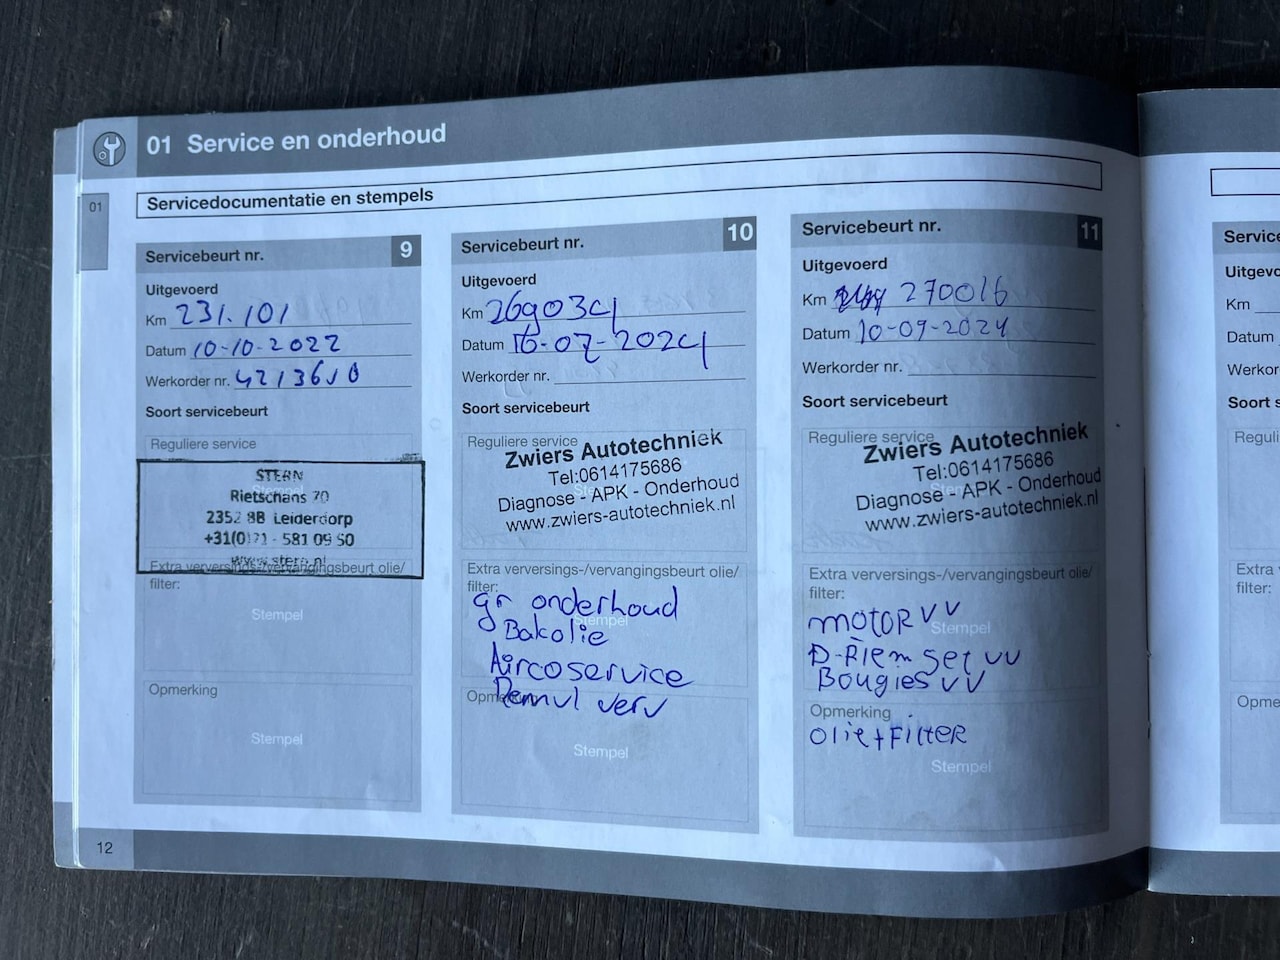 01 Service en onderhoud
01
Servicedocumentatie en stempels
Servicebeurt nr. 9
Uitgevoerd
Km 231.101
Datum 10-10-2022
Werkorder nr.
Soort servicebeurt
Reguliere service
STERN
Rietschans 70
2352 BB Leiderdorp
+31(0)71 - 581 09 50
www.stern.nl
Extra verversings-/vervangingsbeurt olie/
filter:
Stempel
Opmerking
Stempel
12
Servicebeurt nr. 10
Uitgevoerd
Km 269034
Datum 16-07-2024
Werkorder nr.
Soort servicebeurt
Reguliere service
Zwiers Autotechniek
Tel:0614175686
Diagnose - APK - Onderhoud
www.zwiers-autotechniek.nl
Extra verversings-/vervangingsbeurt olie/
filter:
gr onderhoud
Stempel
Bakolie
Aircoservice
Opmerking
verv
Stempel
Servicebeurt nr. 11
Uitgevoerd
Km 270016
Datum 10-09-2024
Werkorder nr.
Soort servicebeurt
Reguliere service
Zwiers Autotechniek
Tel:0614175686
Diagnose - APK - Onderhoud
www.zwiers-autotechniek.nl
Extra verversings-/vervangingsbeurt olie/
filter:
MOTOR VV
Stempel
D-Riem set VV
Bougies VV
Opmerking
Olie + Filter
Stempel
Service
Uitgevo
Km
Datum
Werkor
Soort s
Reguli
Extra
filter:
Opme